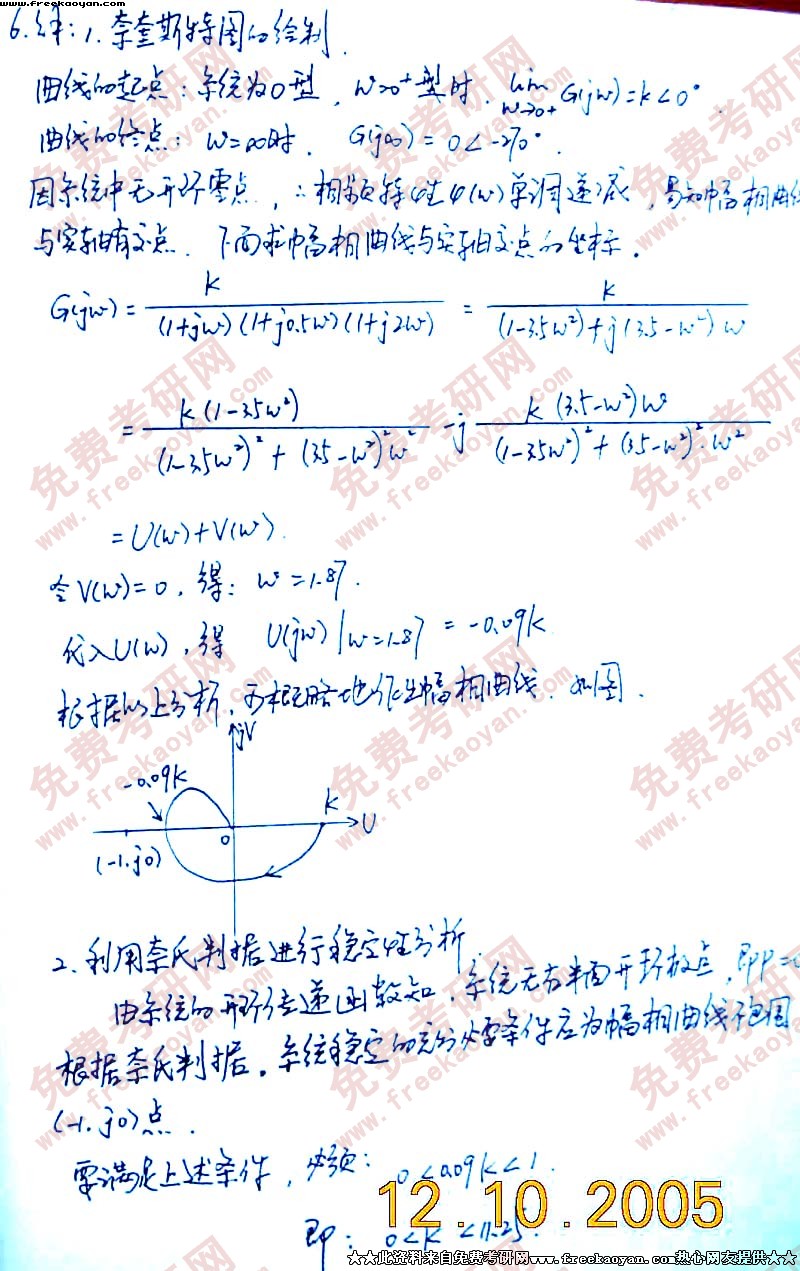 www.freekaoyan.com
6.解:1.奈奎斯特图的绘制.
曲线的起点:系统为0型,w→0⁺型时. lim w→0+ G(jw)=k<0°
曲线的终点:w=∞时. G(j∞)=0<-270°.
因系统中无开环零点,∴相频特性φ(w)单调递减,易知幅相曲线
与实轴有交点. 下面求幅相曲线与实轴交点的坐标.
G(jw)= k / (1+jw)(1+j0.5w)(1+j2w) = k / (1-3.5w²)+j(3.5-w²)w
= k(1-3.5w²) / (1-3.5w²)²+(3.5-w²)²w² -j k(3.5-w²)w / (1-3.5w²)²+(3.5-w²)²·w²
=U(w)+V(w).
令V(w)=0,得:w=1.87.
代入U(w),得 U(jw)|w=1.87 =-0.09k
根据以上分析,可概略地作出幅相曲线.如图.
jV
-0.09k
k
U
0
(-1.j0)
2.利用奈氏判据进行稳定性分析.
由系统的开环传递函数知,系统无右半面开环极点,即P=0
根据奈氏判据.系统稳定的充分必要条件应为幅相曲线不包围
(-1.j0)点.
要满足上述条件,必须:0<0.09k<1.
即:0<k<11.25.
12.10.2005
★★此资料来自免费考研网www.freekaoyan.com热心网友提供★★
免费考研网
www.freekaoyan.com